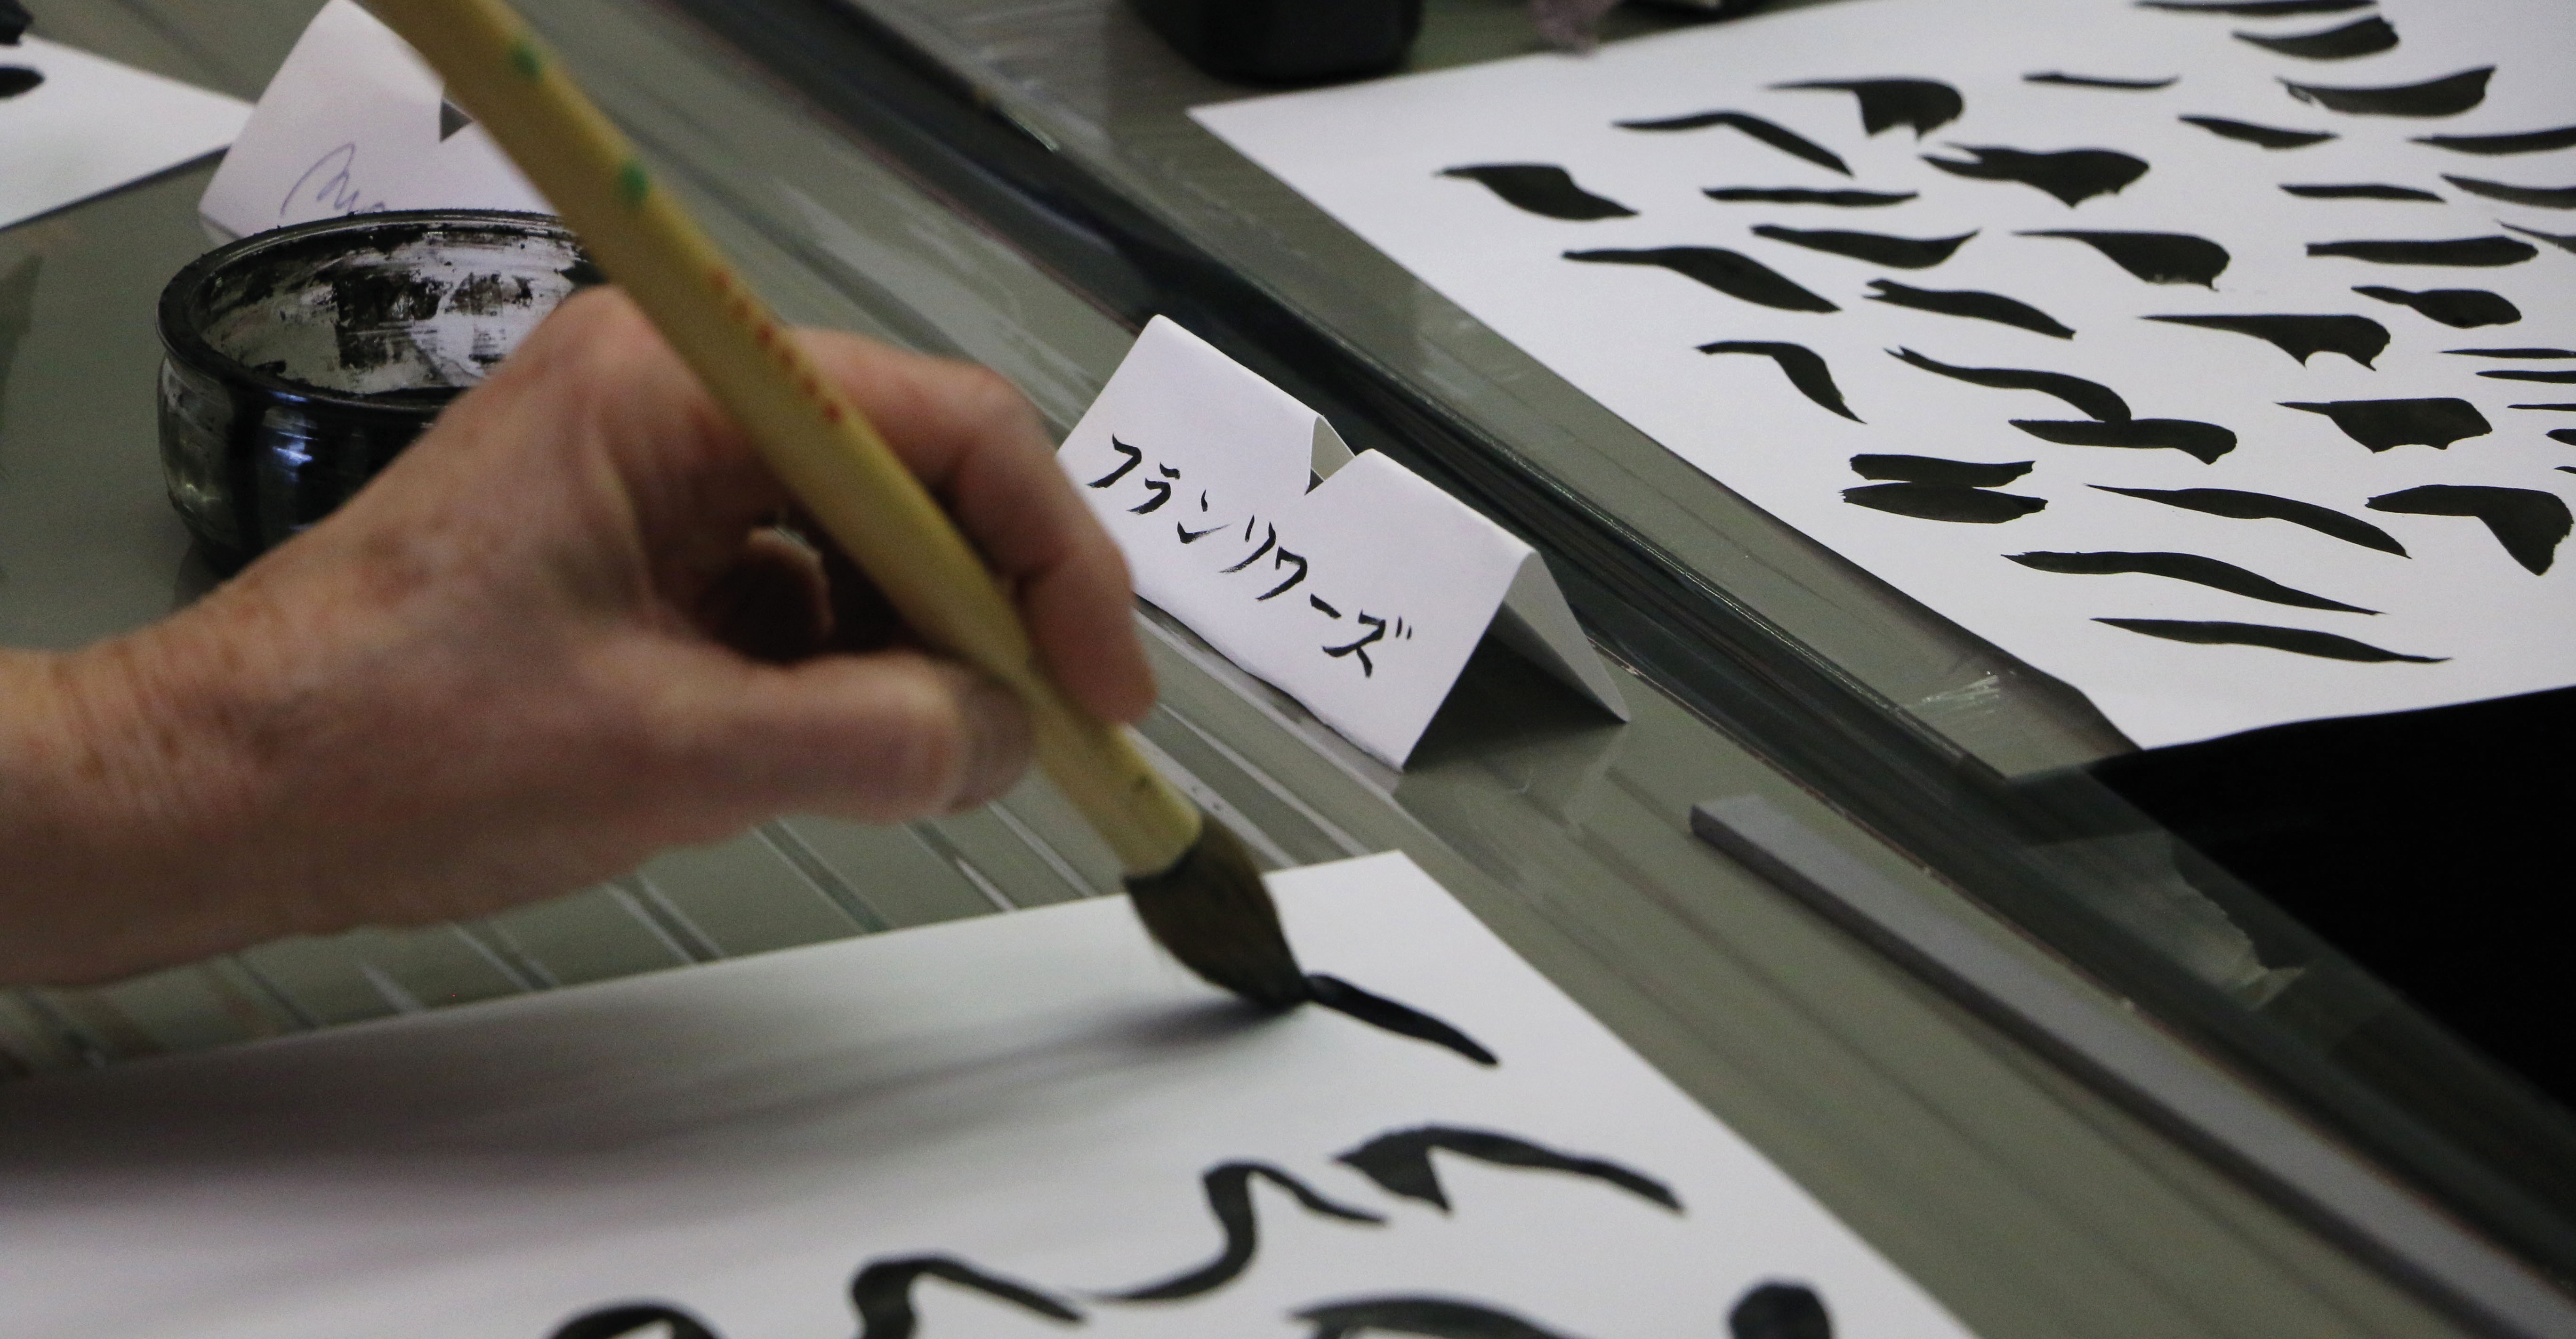 フランソワーズ